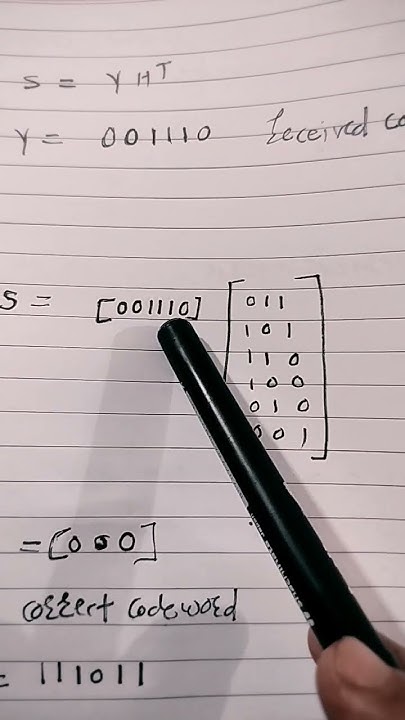 S = Y H^T
Y = 001110 received co
S = [001110] [011
101
110
100
010
001]
= [0 0 0]
correct codeword
= 111011